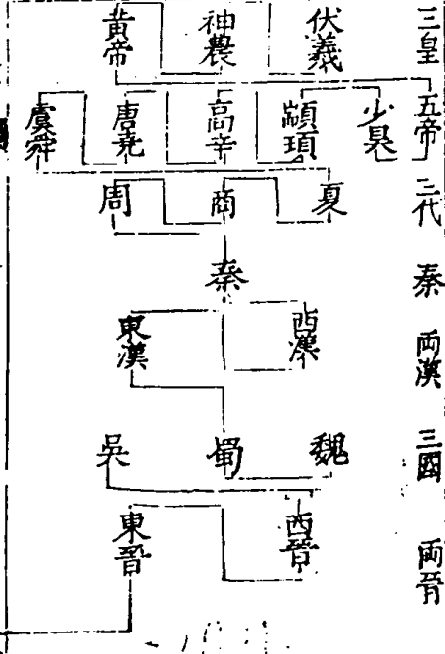 三皇
五帝
三代
秦
両漢
三國
両晉
伏羲
神農
黄帝
少昊
顓頊
高辛
唐堯
虞舜
夏
商
周
秦
西漢
東漢
魏
蜀
吳
西晉
東晉